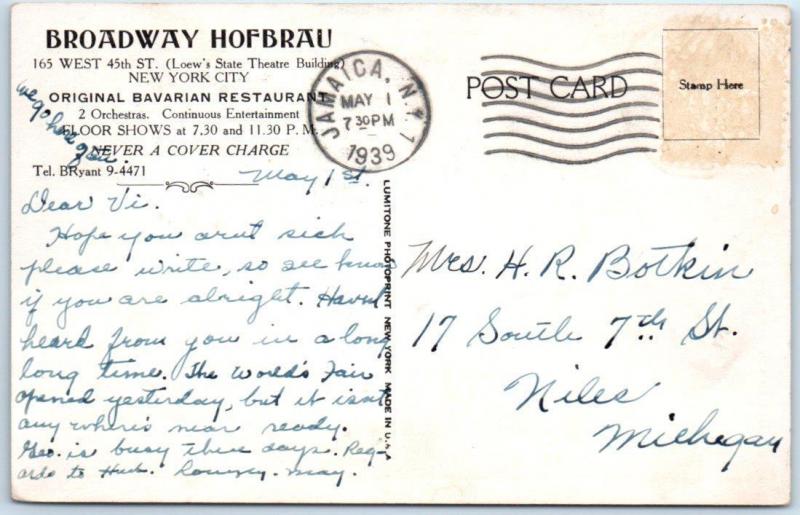 BROADWAY HOFBRAU
165 WEST 45th ST. (Loew's State Theatre Building)
NEW YORK CITY
ORIGINAL BAVARIAN RESTAURANT
2 Orchestras. Continuous Entertainment
FLOOR SHOWS at 7.30 and 11.30 P. M.
NEVER A COVER CHARGE
Tel. BRyant 9-4471
we go here
May 1st.
Dear Vi.
Hope you arn't sick
please write, so see know
if you are alright. Havnt
heard from you in a long
long time. The World's Fair
opened yesterday, but it isnt
any where's near ready.
Geo. is busy these days. Reg-
ards to Hub. May.
JAMAICA, N.Y. 1
MAY 1
7 30 PM
1939
POST CARD
Stamp Here
LUMITONE PHOTOPRINT NEW YORK MADE IN U.S.A.
Mrs. H. R. Botkin
17 South 7th St.
Niles
Michegan